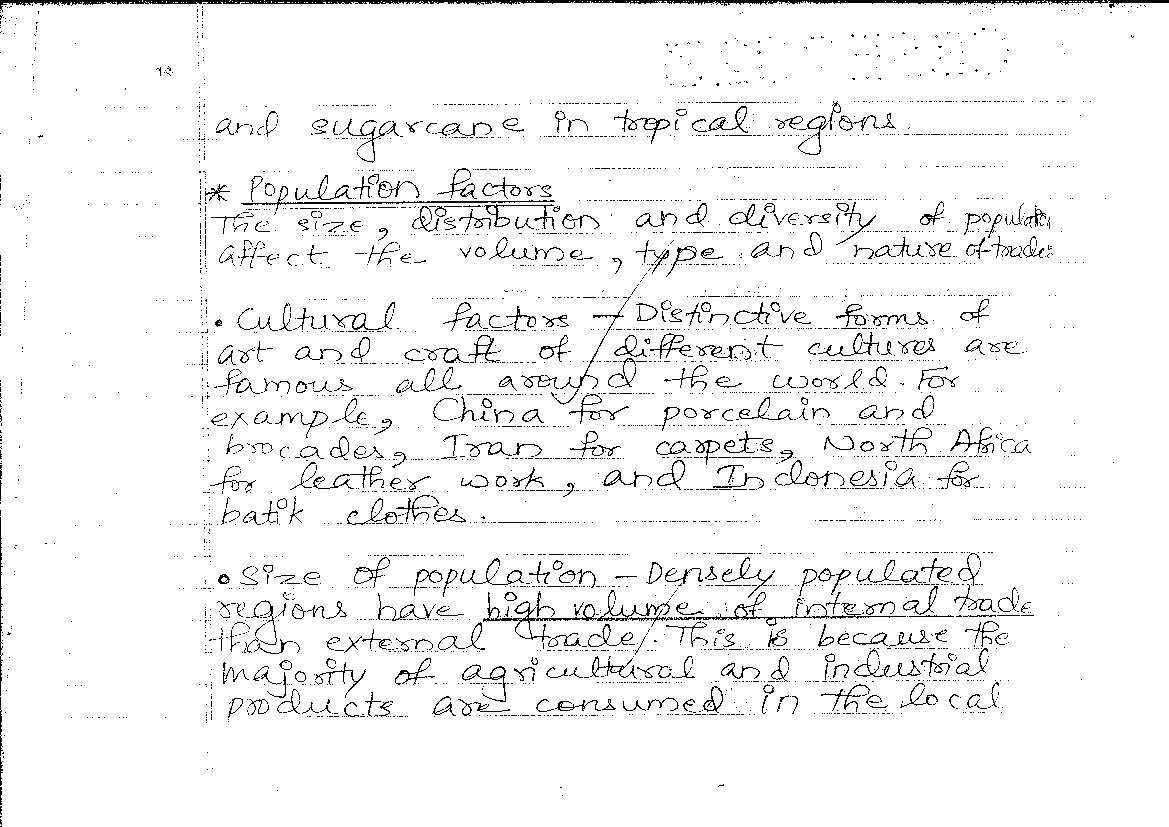 and sugarcane in tropical regions.
* Population factors
The size, distribution and diversity of populatio
affect the volume, type and nature of trade.
• Cultural factors – Distinctive forms of
art and craft of different cultures are
famous all around the world. For
example, China for porcelain and
brocades, Iran for carpets, North Africa
for leather work, and Indonesia for
batik clothes.
• Size of population – Densely populated
regions have high volume of internal trade
than external trade. This is because the
majority of agricultural and industrial
products are consumed in the local